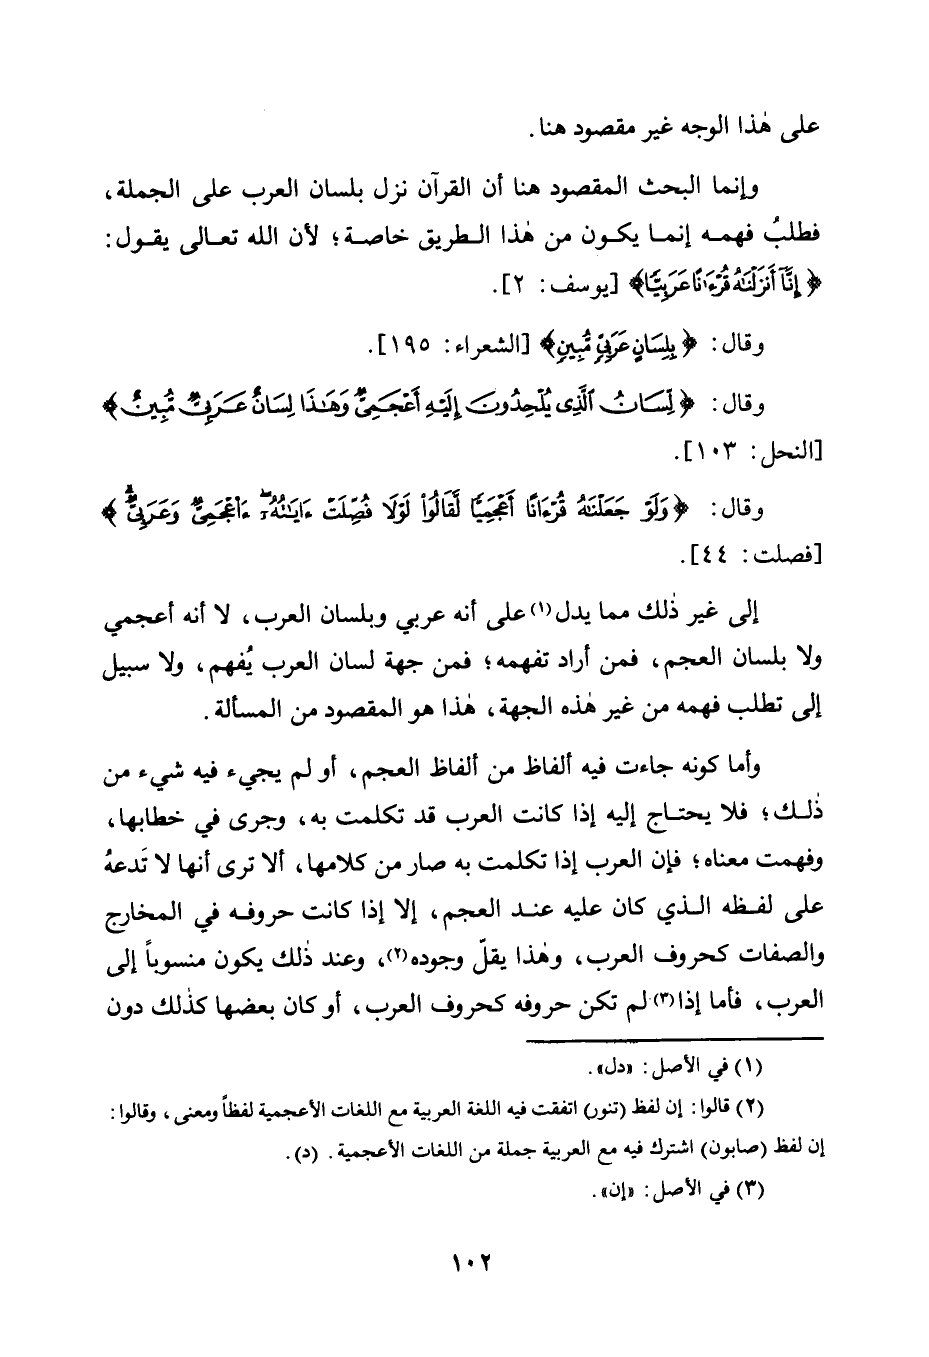 على هٰذا الوجه غير مقصود هنا.
وإنما البحث المقصود هنا أن القرآن نزل بلسان العرب على الجملة،
فطلبُ فهمـه إنمـا يكـون من هٰذا الـطريق خاصـة؛ لأن الله تعـالى يقـول:
﴿إِنَّآ أَنزَلْنَٰهُ قُرْءَٰنًا عَرَبِيًّا﴾ [يوسف: ٢].
وقال: ﴿بِلِسَانٍ عَرَبِيٍّ مُّبِينٍ﴾ [الشعراء: ١٩٥].
وقال: ﴿لِّسَانُ ٱلَّذِى يُلْحِدُونَ إِلَيْهِ أَعْجَمِىٌّ وَهَٰذَا لِسَانٌ عَرَبِىٌّ مُّبِينٌ﴾
[النحل: ١٠٣].
وقال: ﴿وَلَوْ جَعَلْنَٰهُ قُرْءَانًا أَعْجَمِيًّا لَّقَالُوا۟ لَوْلَا فُصِّلَتْ ءَايَٰتُهُۥٓ ءَا۬عْجَمِىٌّ وَعَرَبِىٌّ ۗ﴾
[فصلت: ٤٤].
إلى غير ذٰلك مما يدل(١) على أنه عربي وبلسان العرب، لا أنه أعجمي
ولا بلسان العجم، فمن أراد تفهمه؛ فمن جهة لسان العرب يُفهم، ولا سبيل
إلى تطلب فهمه من غير هٰذه الجهة، هٰذا هو المقصود من المسألة.
وأما كونه جاءت فيه ألفاظ من ألفاظ العجم، أو لم يجيء فيه شيء من
ذٰلـك؛ فلا يحتـاج إليه إذا كانت العرب قد تكلمت به، وجرى في خطابها،
وفهمت معناه؛ فإن العرب إذا تكلمت به صار من كلامها، ألا ترى أنها لا تَدعهُ
على لفـظه الـذي كان عليه عنـد العجم، إلا إذا كانت حروفـه في المخارج
والصفات كحروف العرب، وهٰذا يقلّ وجوده(٢)، وعند ذٰلك يكون منسوباً إلى
العرب، فأما إذا(٣) لم تكن حروفه كحروف العرب، أو كان بعضها كذٰلك دون
(١) في الأصل: «دل».
(٢) قالوا: إن لفظ (تنور) اتفقت فيه اللغة العربية مع اللغات الأعجمية لفظاً ومعنى، وقالوا:
إن لفظ (صابون) اشترك فيه مع العربية جملة من اللغات الأعجمية. (د).
(٣) في الأصل: «إن».
١٠٢